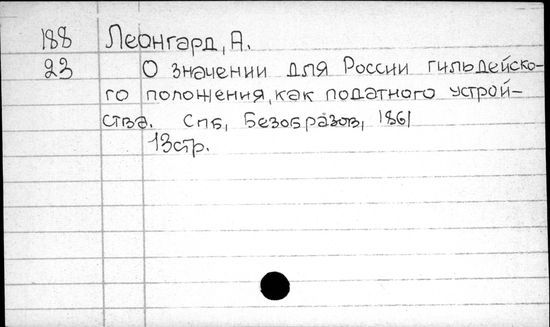 188 Леонгард, А.
23 О значении для России гильдейско-
го положения, как податного устрой-
ства. Спб, Безобразов, 1861
13стр.